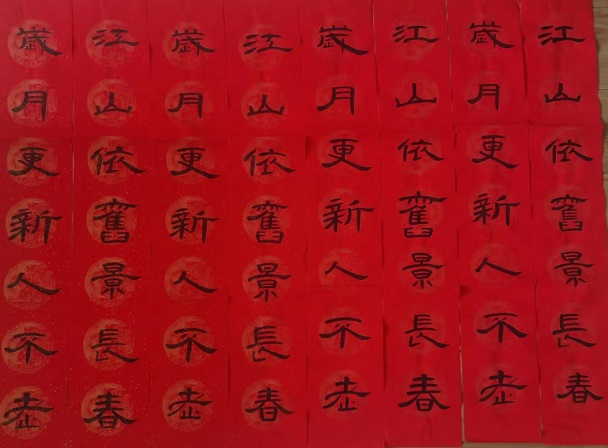 江山依舊景長春
歲月更新人不老
江山依舊景長春
歲月更新人不老
江山依舊景長春
歲月更新人不老
江山依舊景長春
歲月更新人不老